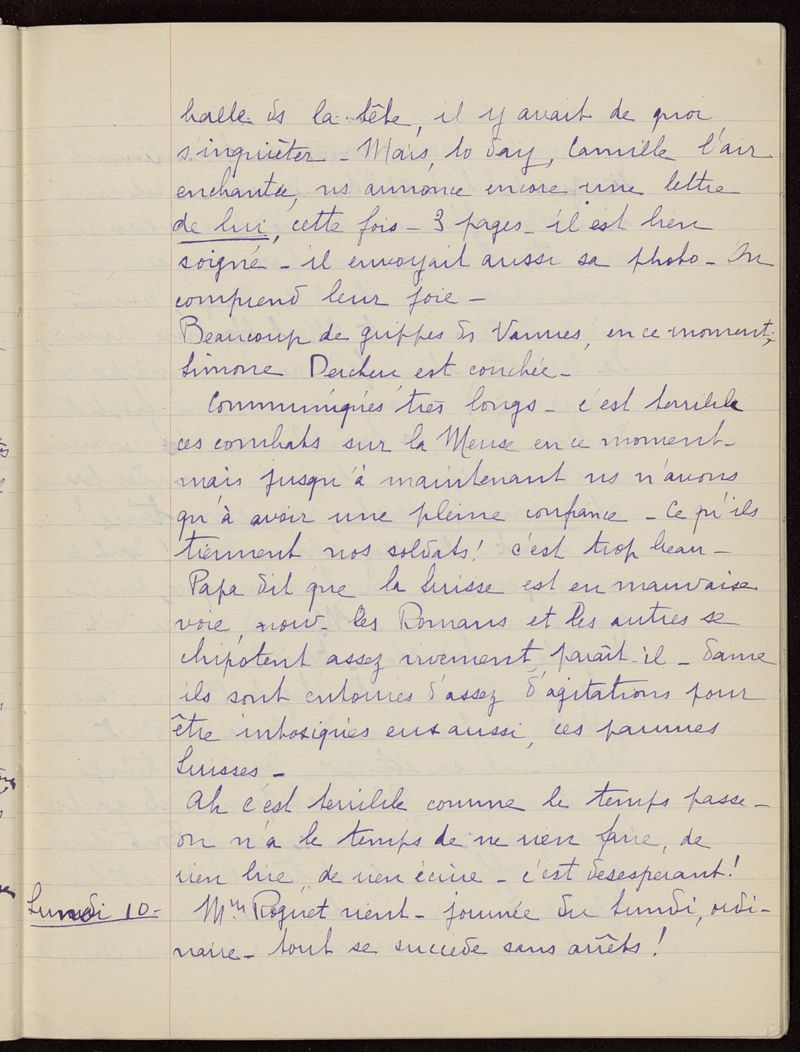 balle ds la tête, il y avait de quoi
s'inquiéter - Mais, to day, Camille l'air
enchantée, ns annonce encore une lettre
de lui, cette fois - 3 pages - il est bien
soigné - il envoyait aussi sa photo - On
comprend leur joie -
Beaucoup de grippes ds Vannes, en ce moment,
Simone est couchée -
Communiqués très longs - c'est terrible
ces combats sur la Meuse en ce moment -
mais jusqu'à maintenant ns n'avons
qu'à avoir une pleine confiance - Ce qu'ils
tiennent nos soldats! c'est trop beau -
Papa dit que la Suisse est en mauvaise
voie, les Romans et les autres se
chipotent assez vivement, paraît-il - dame
ils sont entourés d'assez d'agitations pour
être intoxiqués eux aussi, ces pauvres
Suisses -
Ah c'est terrible comme le temps passe -
on n'a le temps de ne rien faire, de
rien lire, de rien écrire - c'est désespérant!
Lundi 10 - Mme Roguet vient - journée du Lundi, ordi-
naire - tout se succède sans arrêts!